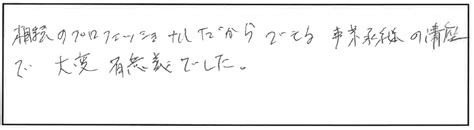 相続のプロフェッショナルだからできる 事業承継の講座
で 大変 有意義でした。